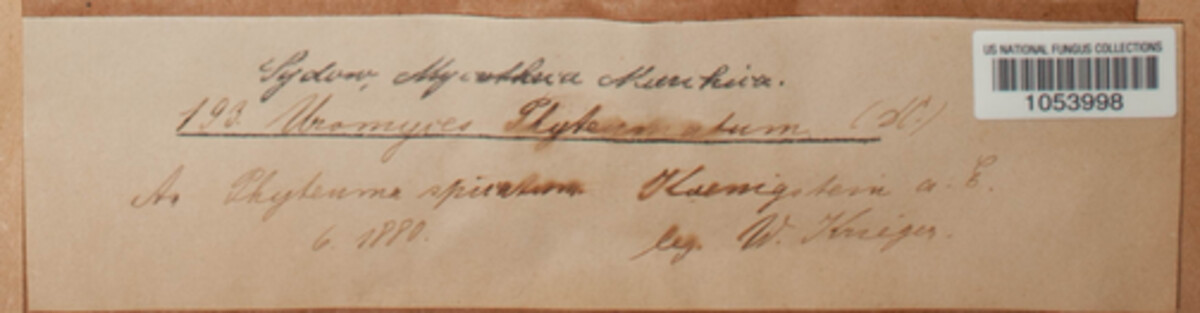 Sydow, Mycotheca Marchica.
193. Uromyces Phyteumatum (DC.)
An Phyteuma spicatum Koenigstein a. E.
6. 1880. leg. W. Krieger.
US NATIONAL FUNGUS COLLECTIONS
1053998